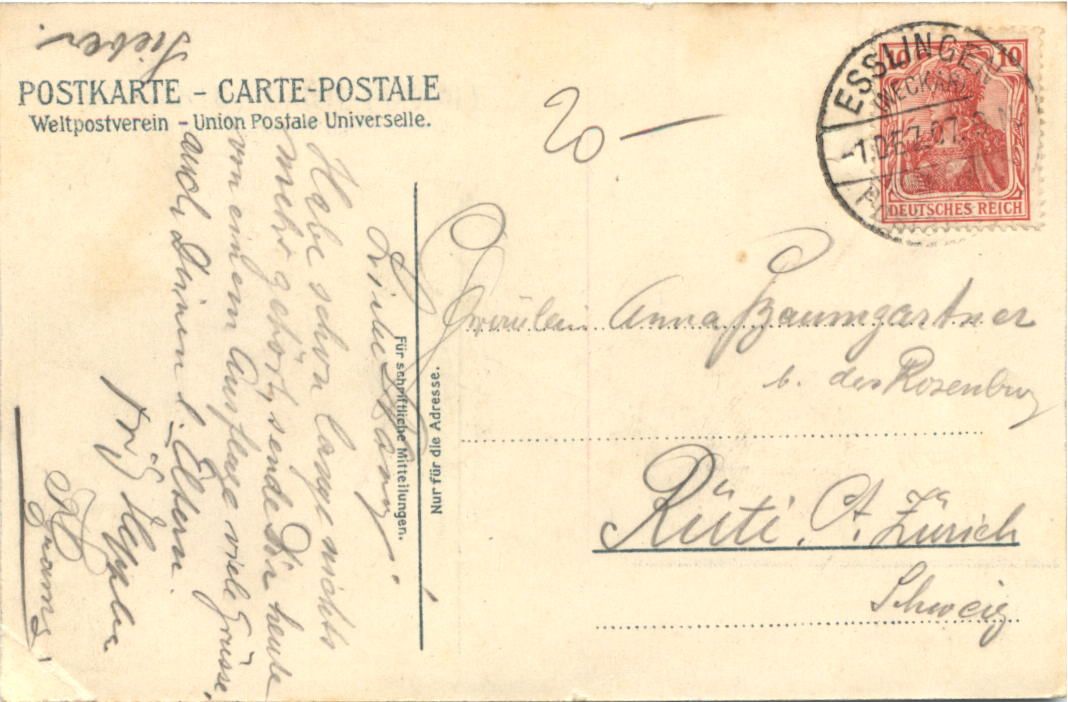 POSTKARTE – CARTE-POSTALE
Weltpostverein – Union Postale Universelle.
20 —
ESSLINGEN
(NECKAR)
-1.DEZ.07.
10 10
DEUTSCHES REICH
Für schriftliche Mitteilungen.
Nur für die Adresse.
Fräulein Anna Baumgartner
b. der Rosenburg
Rüti, Ct. Zürich
Schweiz
Liebe
Habe schon lange nichts
mehr gehört, sende Dir heute
von einem Ausfluge viele Grüsse,
auch Deinen l. Eltern.